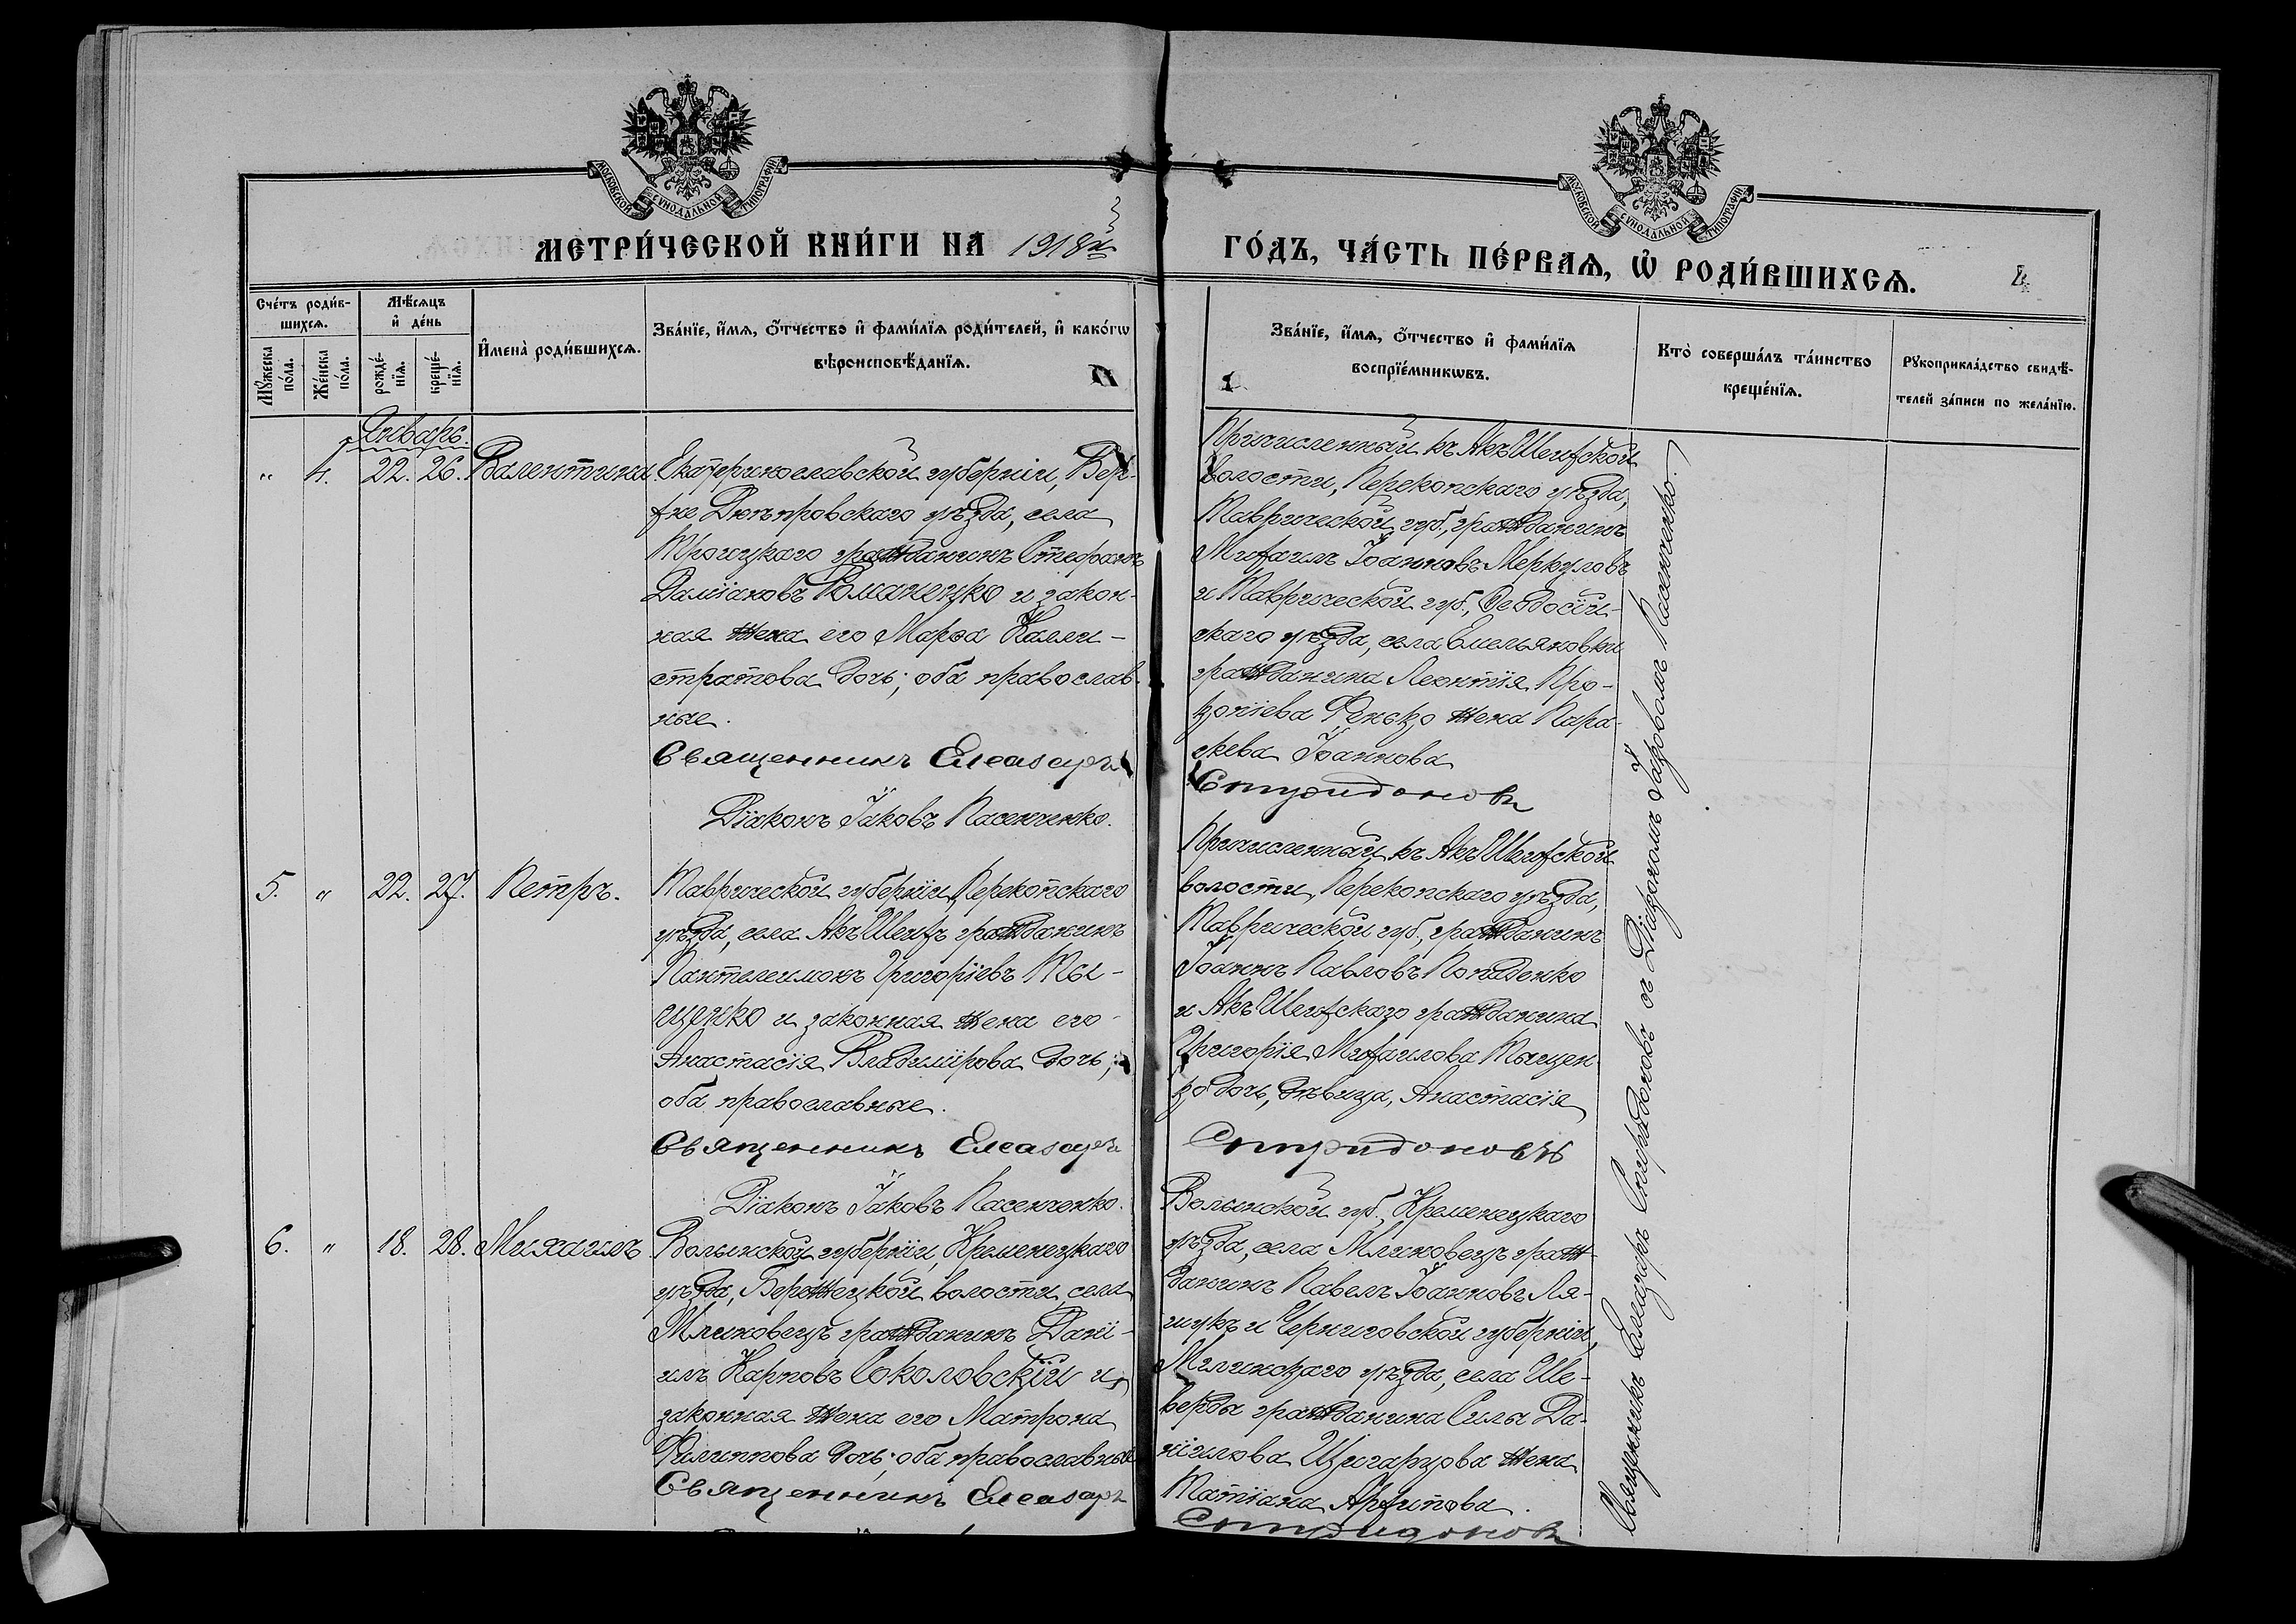 МОСКОВСКОЙ СѴНОДАЛЬНОЙ ТИПОГРАФІИ
МОСКОВСКОЙ СѴНОДАЛЬНОЙ ТИПОГРАФІИ
МЕТРИ́ЧЕСКОЙ КНИ́ГИ НА 1918й ГО́ДЪ, ЧА́СТЬ ПЕ́РВАѦ, Ѡ҆ РОДИ́ВШИХСѦ.
Сче́тъ роди́в-
шихсѧ.
Мѣ́сѧцъ
и҆ де́нь
Мꙋ́жеска
по́ла.
Же́нска
по́ла.
рожде́-
нїѧ.
креще́-
нїѧ.
И҆мена̀ роди́вшихсѧ.
Зва́нїе, и҆́мѧ, ѻ҆́тчество и҆ фами́лїѧ роди́телей, и҆ како́гѡ
вѣроисповѣ́данїѧ.
Зва́нїе, и҆́мѧ, ѻ҆́тчество и҆ фами́лїѧ
воспрїе́мникѡвъ.
Кто̀ соверша́лъ та́инство
креще́нїѧ.
Рꙋкоприкла́дство свидѣ́-
телей за́писи по жела́нїю.
Январь.
" 4. 22. 26. Валентина.
Екатеринославской губерніи, Вер-
хне Днѣпровскаго уѣзда, села
Троицкаго гражданинъ Стефанъ
Даміановъ Романецко и закон-
ная жена его Марѳа Калли-
стратова дочь; оба православ-
ные.
Священникъ Елеазаръ
Діаконъ Іаковъ Пасенченко.
Причисленный къ Акъ Шеихской
волости, Перекопскаго уѣзда,
Таврической губ., гражданинъ
Михаилъ Іоанновъ Меркуловъ
и Таврической губ., Ѳеодосій-
скаго уѣзда, села Емельяновки
гражданина Леонтія Про-
копіева Фенько жена Пара-
скева Іоаннова
Спиридоновъ
5. " 22. 27. Петръ.
Таврической губерніи, Перекопскаго
уѣзда, села Акъ Шеихъ гражданинъ
Пантелеимонъ Григоріевъ Ты-
щенко и законная жена его
Анастасія Владимірова дочь;
оба православные.
Священникъ Елеазаръ
Діаконъ Іаковъ Пасенченко.
Причисленный къ Акъ Шеихской
волости, Перекопскаго уѣзда,
Таврической губ., гражданинъ
Іоаннъ Павловъ Попаденко
и Акъ Шеихскаго гражданина
Григорія Михаилова Тыщен-
ко дочь, дѣвица, Анастасія
Спиридоновъ
6. " 18. 28. Михаилъ
Волынской губерніи, Кременецкаго
уѣзда, Бережецкой волости, села
Млиновецъ гражданинъ Дані-
илъ Карповъ Соколовскій и
законная жена его Матрона
Филиппова дочь; оба православные
Священникъ Елеазаръ
Волынской губ., Кременецкаго
уѣзда, села Млиновецъ граж-
данинъ Павелъ Іоанновъ Ля-
шукъ и Черниговской губерніи,
Мглинскаго уѣзда, села Ше-
верды гражданина Силы Да-
ніилова Цыганцова жена
Татіана Архипова.
Спиридоновъ
Священникъ Елеазаръ Спиридоновъ съ Діакономъ Іаковомъ Пасенченко.